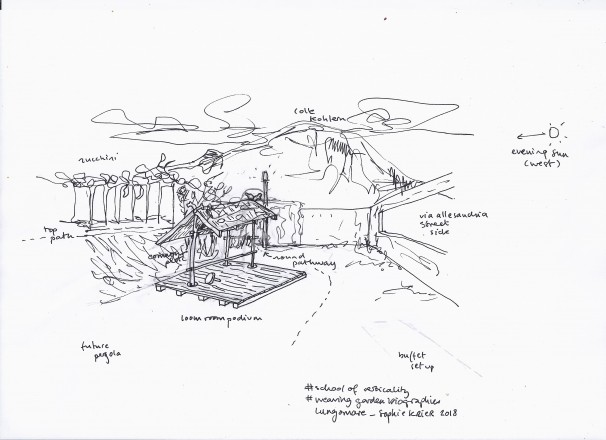 colle
Kohlern
zucchini
evening sun
(west)
top
path
via allesandria
street
side
round
pathway
loom room podium
future
pergola
buffet
set up
#school of verticality
# weaving garden biographies
Lungomare - Sophie Krier 2018